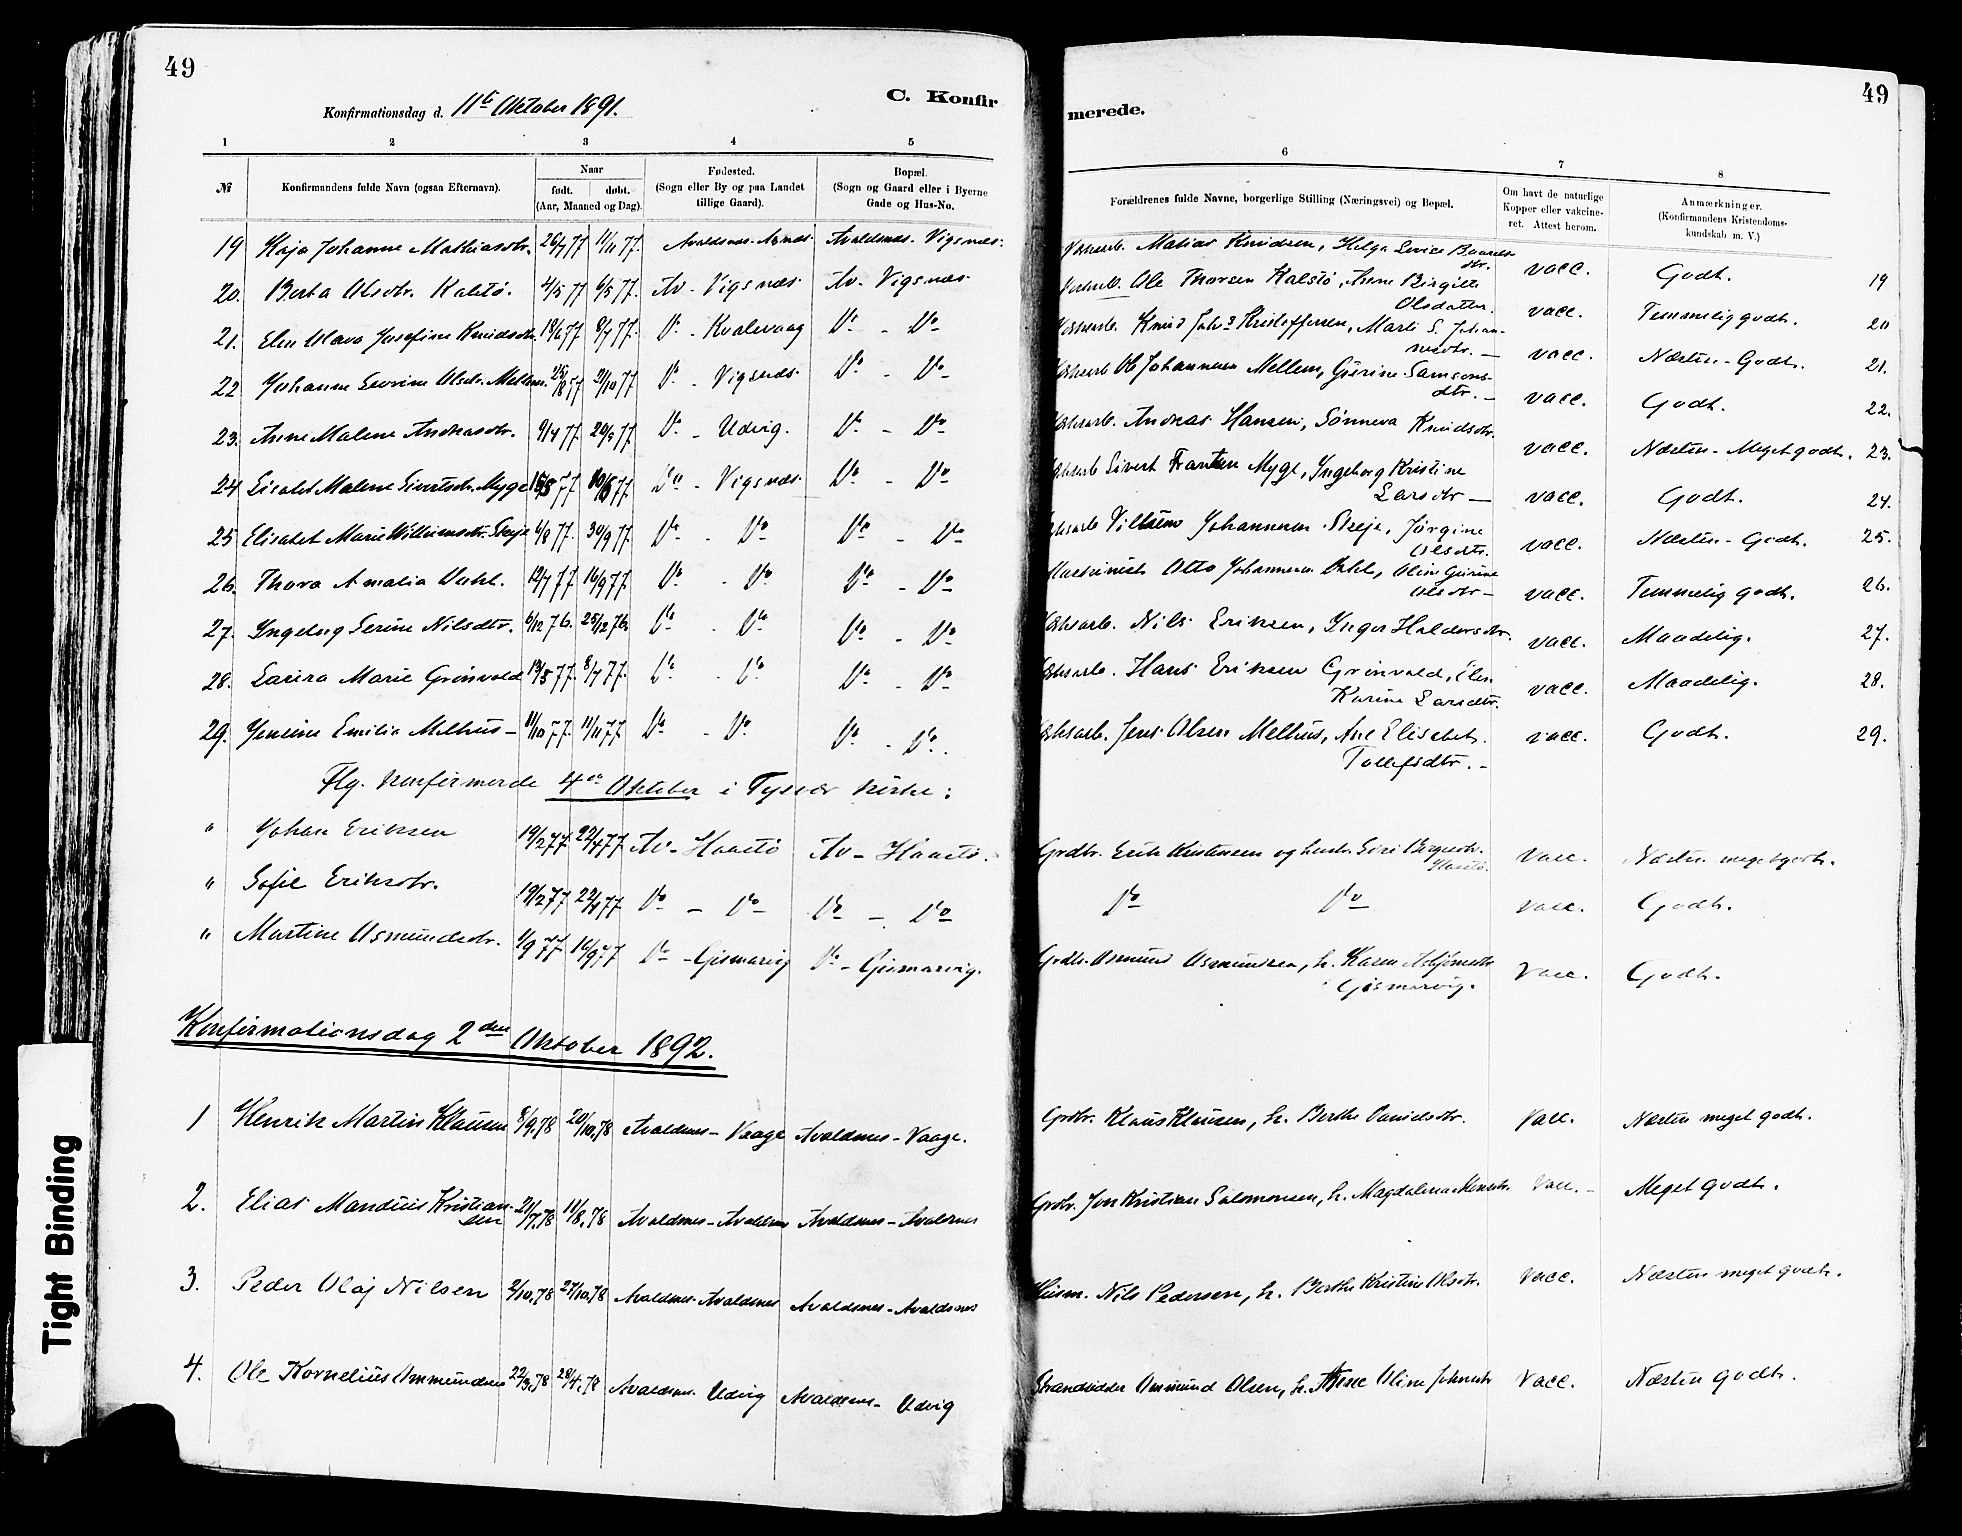 49
Konfirmationsdag d. 11te Oktober 1891.
C. Konfir
1 2 3 4 5
№
Konfirmandens fulde Navn (ogsaa Efternavn).
Naar
født. døbt.
(Aar, Maaned og Dag).
Fødested.
(Sogn eller By og paa Landet
tillige Gaard).
Bopæl.
(Sogn og Gaard eller i Byerne
Gade og Hus-No.
19 Kaja Johanne Mathiasdtr. 26/7 77 11/11 77. Avaldsnes. Avaldsnes. Vigsnes.
20. Berta Olsdtr. Kalstø. 4/5 77 6/5 77. Av. Vigsnæs. Av. Vigsnæs
21. Elen Olava Josefine Knudsdtr. 18/6 77 8/7 77. Do - Kvalevaag Do - Do
22 Johanne Severine Olsdtr. Mellem. 21/10 77 Do - Vigsnæs. Do - Do
23. Anne Malene Andreasdtr. 9/7 77. 20/9 77. Do - Udvig. Do - Do
24 Lisabet Malene Sivertsdtr. Myge 77. 77 Do - Vigsnæs. Do - Do
25 Elisabet Marie Vilhumsdtr. Skeje 6/8 77. 30/9 77. Do - Do Do - Do
26. Thora Amalia Dahl. 12/7 77 16/9 77. Do - Do Do - Do
27. Ingeborg Serine Nilsdtr. 6/12 76. 25/12 76. Do - Do Do - Do
28. Larira Marie Grønvold 13/5 77. 8/7 77. Do - Do Do - Do
29. Jensine Emilie Melhus - 11/10 77. 11/11 77. Do - Do Do - Do.
Flg. konfirmerede 4de Oktober i Tysvær kirke:
" Johan Eriksen 19/2 77 22/4 77 Av - Haastø Av - Haastø.
" Sofie Eriksdtr. 19/2 77 22/4 77 Do - Do Do - Do
" Martine Osmundsdtr. 1/9 77 16/9 77 Do - Gismarvig Do - Gismarvig.
Konfirmationsdag 2den Oktober 1892.
1 Henrik Martin Klausen 8/9.78 20/10.78 Avaldsnes - Vaage Avaldsnes - Vaage.
2. Elias Mandius Kristian-
sen 21/7.78 11/8.78 Avaldsnes - Avaldsnes Avaldsnes - Avaldsnes
3. Peder Olaj Nilsen 2/10.78 27/10.78 Avaldsnes - Avaldsnes Avaldsnes - Avaldsnes
4. Ole Kornelius Ommundsen 22/3.78 28/4.78 Avaldsnes. Udvig Avaldsnes - Udvig
49
merede.
6 7 8
Forældrenes fulde Navne, borgerlige Stilling (Næringsvei) og Bopæl.
Om havt de naturlige
Kopper eller vakcine-
ret. Attest herom.
Anmærkninger.
(Konfirmandens Kristendoms-
kundskab m. V.)
Matias Knudsen, Helga Serine Baards-
dtr. vacc. Godt. 19
Ole Thorsen Kalstø, Anne Birgitte
Olsdatter. vacc. Temmelig godt. 20
Knud Johs Kristoffersen, Marte S. Johan-
nesdtr. - vacc. Næsten - Godt. 21.
Ole Johannesen Mellem, Gurine Samsons-
dtr. - vacc. Godt. 22.
Andreas Hansen, Sønneva Knudsdtr. vacc. Næsten - Meget godt. 23.
Sivert Frantsen Myge, Ingeborg Kristine
Larsdtr - vacc. Godt. 24.
Vilhum Johannesen Skeje, Jørgine
Olsdtr. vacc. Næsten - Godt. 25.
Maskinist Otto Johannesen Dahl, Olin Gurine
Olsdtr - vacc. Temmelig godt. 26.
Nils Eriksen, Inger Haldorsdtr. vacc. Maadelig. 27.
Hans Eriksen Grønvold, Elen
Karine Larsdtr. vacc. Maadelig. 28.
Jens Olsen Melhus, Ane Elisabet
Tollefsdtr. - vacc. Godt. 29.
Grdbr. Erik Kristensen og hustr. Siri
Haastø. Vacc. Næsten meget godt.
Do Do vacc. Godt.
Grdbr. Osmund Osmundsen, h. Karen Asbjørnsdtr.
Gismarvig. Vacc. Godt.
Grdbr. Klaus Klausen, h. Berthe Danielsdtr. Vacc. Næsten meget godt.
Grdbr. Jon Kristian Salomonsen, h. Magdalena Vacc. - Meget godt.
Husm. Nils Pedersen, h. Berthe Kristine Olsdtr. Vacc. Næsten meget godt.
Strandsidder Ommund Olsen, h. Anne Oline Johnsdtr Vacc. Næsten godt.
Tight Binding